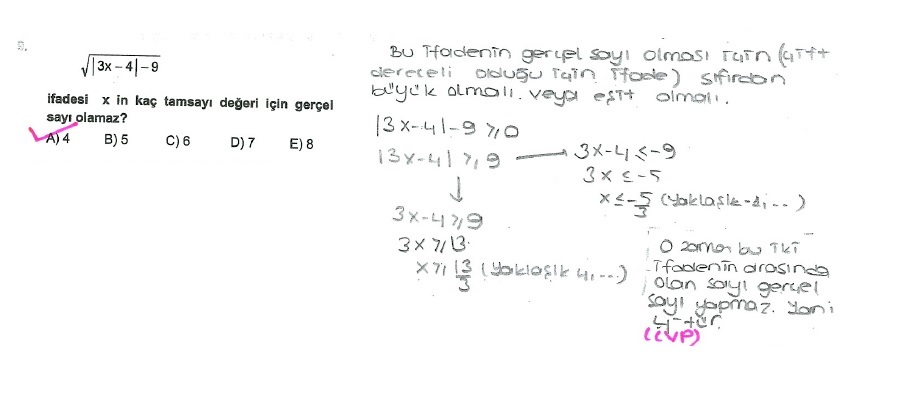 9.
√|3x – 4| – 9
ifadesi x in kaç tamsayı değeri için gerçel
sayı olamaz?
A) 4 B) 5 C) 6 D) 7 E) 8
Bu ifadenin gerçel sayı olması için (çift
dereceli olduğu için ifade) sıfırdan
büyük olmalı. veya eşit olmalı.
|3x-4|-9 ≥ 0
|3x-4| ≥ 9
3x-4 ≥ 9
3x ≥ 13
x ≥ 13/3 (Yaklaşık 4,...)
3x-4 ≤ -9
3x ≤ -5
x ≤ -5/3 (Yaklaşık -1,...)
O zaman bu iki
ifadenin arasında
olan sayı gerçel
sayı yapmaz. Yani
4 tür.
(CVP)